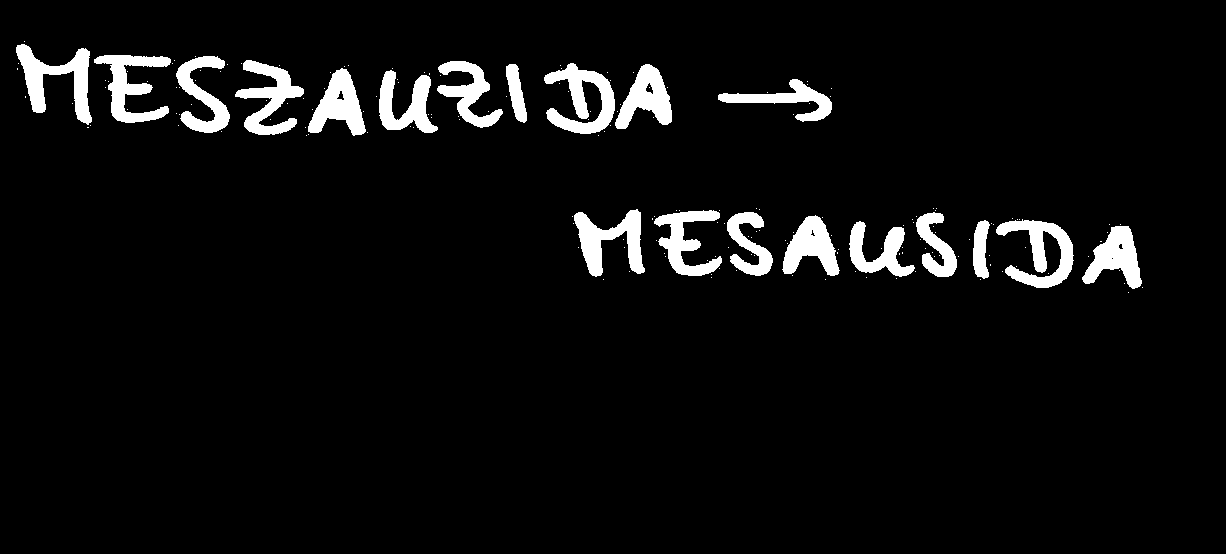 MESZAUZIDA →
MESAUSIDA